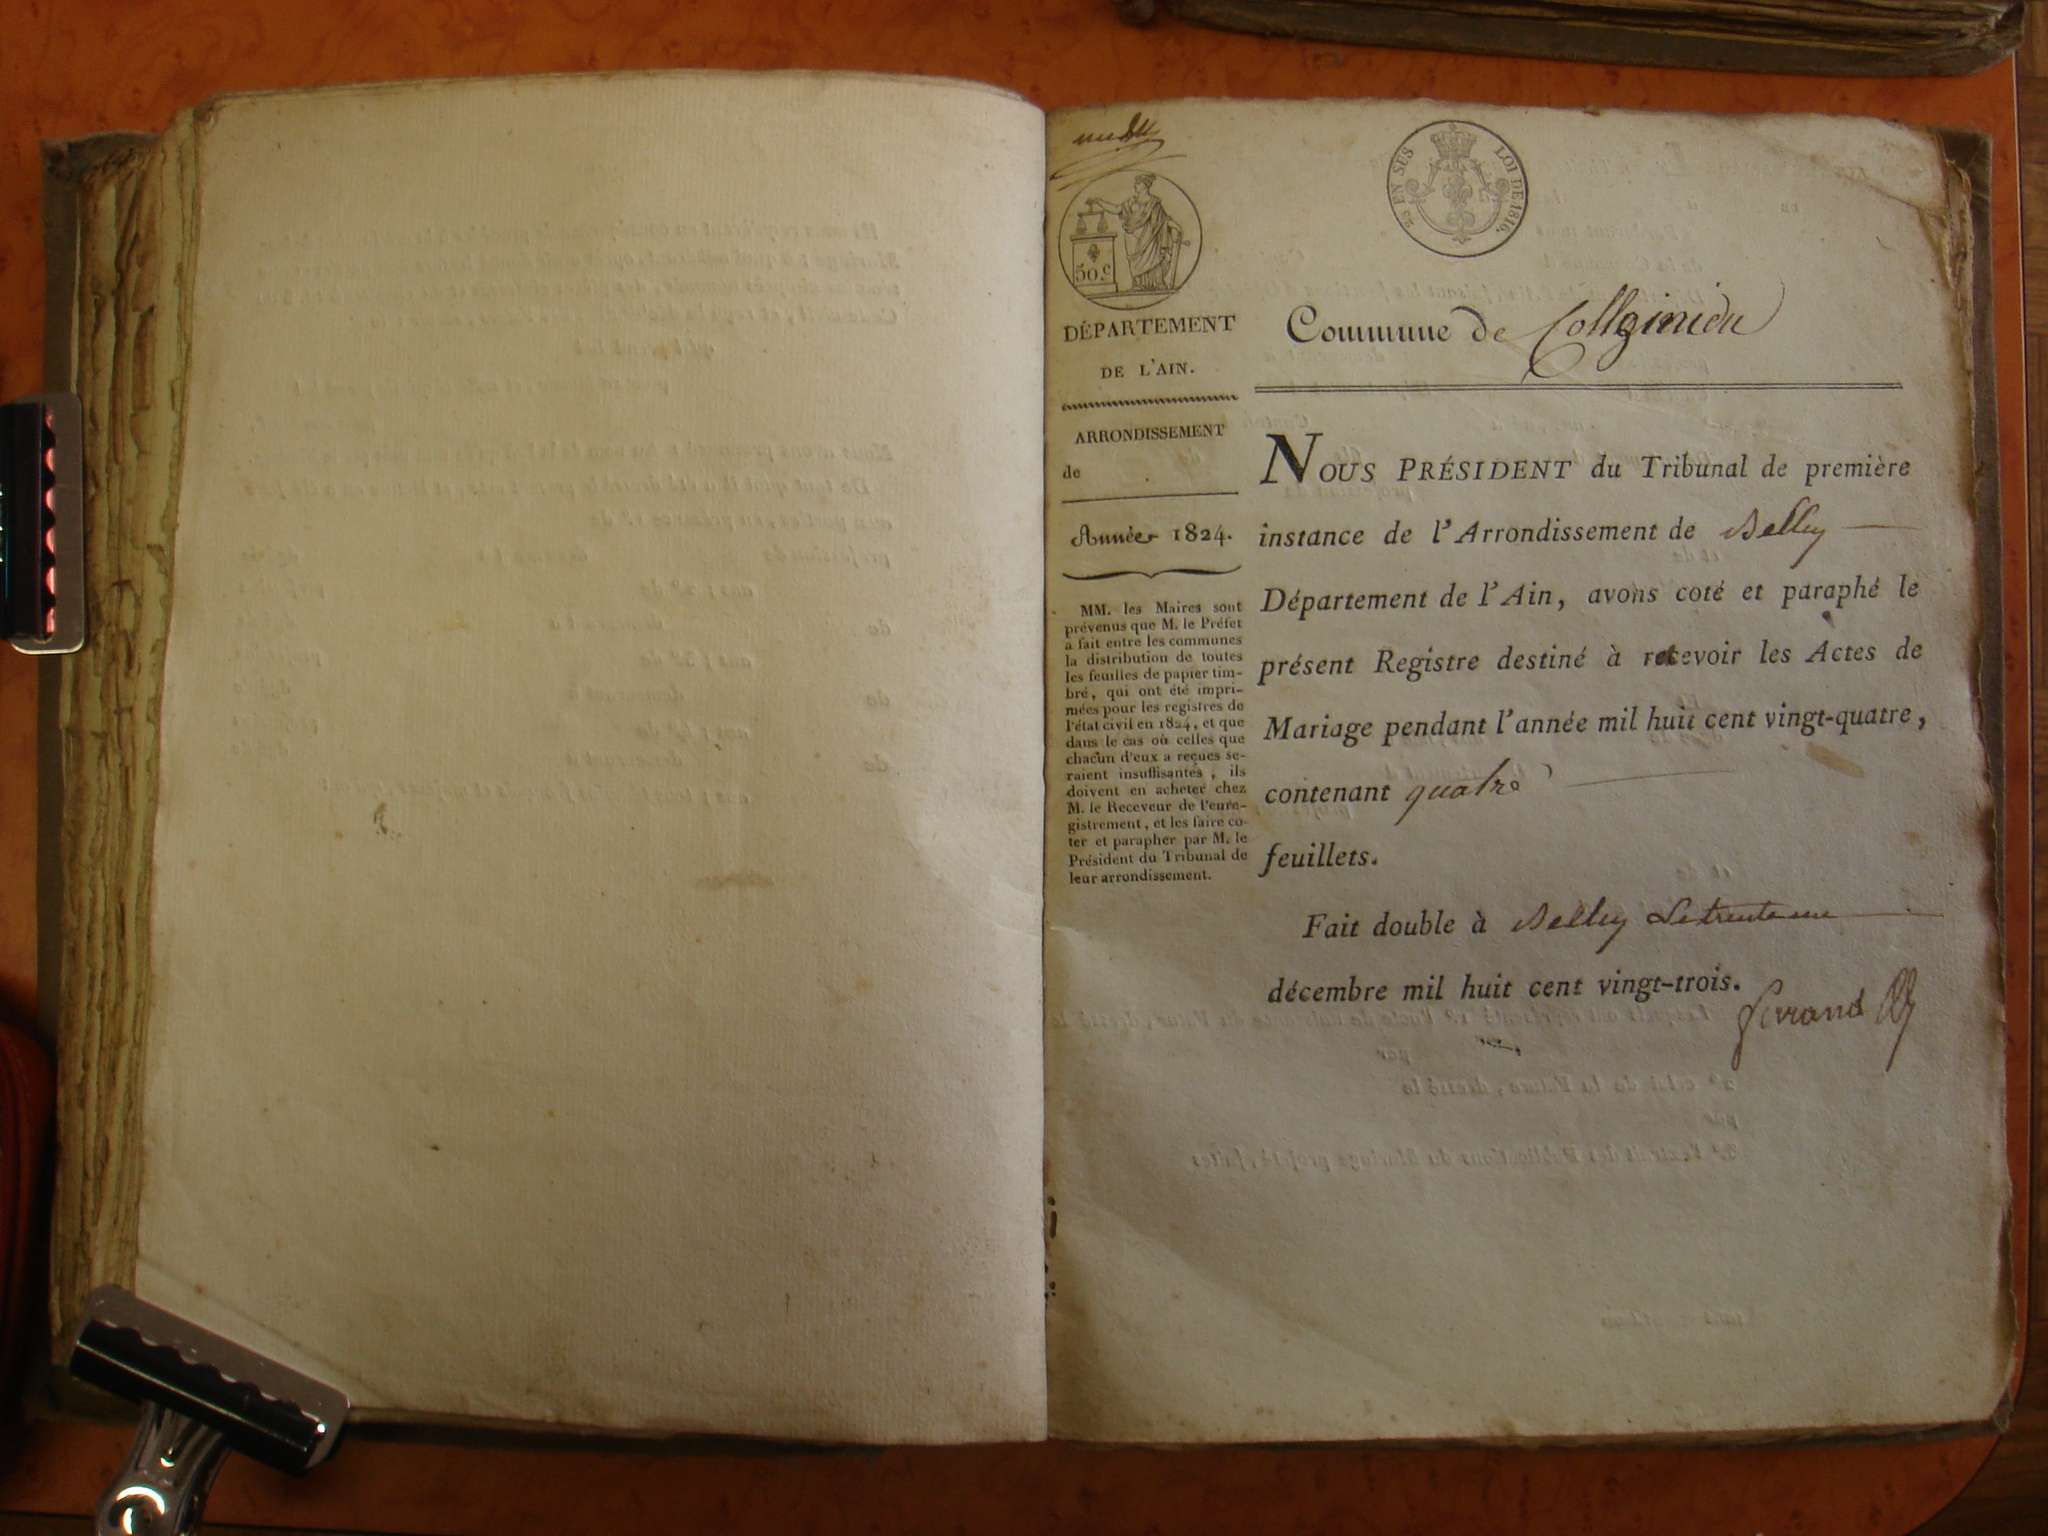 50.c
25 EN SUS
LOI DE 1816.
DÉPARTEMENT
DE L'AIN.
ARRONDISSEMENT
de
Année 1824.
MM. les Maires sont
prévenus que M. le Préfet
a fait entre les communes
la distribution de toutes
les feuilles de papier tim-
bré, qui ont été impri-
mées pour les registres de
l'état civil en 1824, et que
dans le cas où celles que
chacun d'eux a reçues se-
raient insuffisantes, ils
doivent en acheter chez
M. le Receveur de l'enre-
gistrement, et les faire co-
ter et parapher par M. le
Président du Tribunal de
leur arrondissement.
Commune de
NOUS PRÉSIDENT du Tribunal de première
instance de l'Arrondissement de Belley
Département de l'Ain, avons coté et paraphé le
présent Registre destiné à recevoir les Actes de
Mariage pendant l'année mil huit cent vingt-quatre,
contenant quatre
feuillets.
Fait double à Belley Le trente un
décembre mil huit cent vingt-trois.